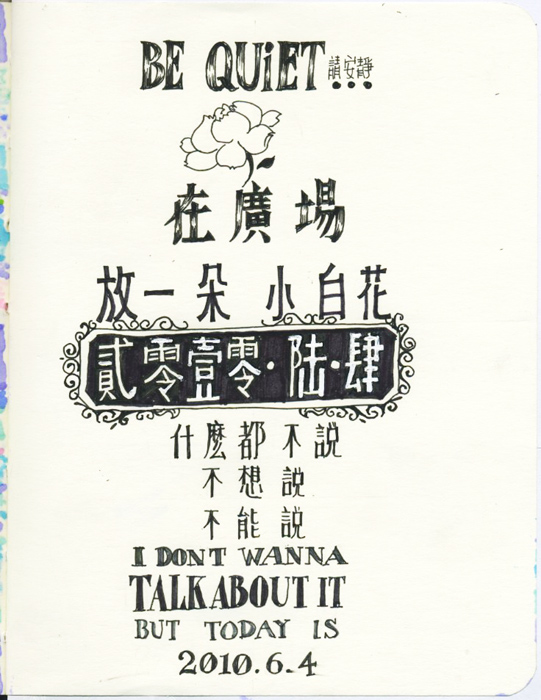 BE QUiET 請安靜...
在廣場
放一朵 小白花
貳零壹零·陸·肆
什麼都不說
不想說
不能說
I DONT WANNA
TALK ABOUT IT
BUT TODAY IS
2010.6.4